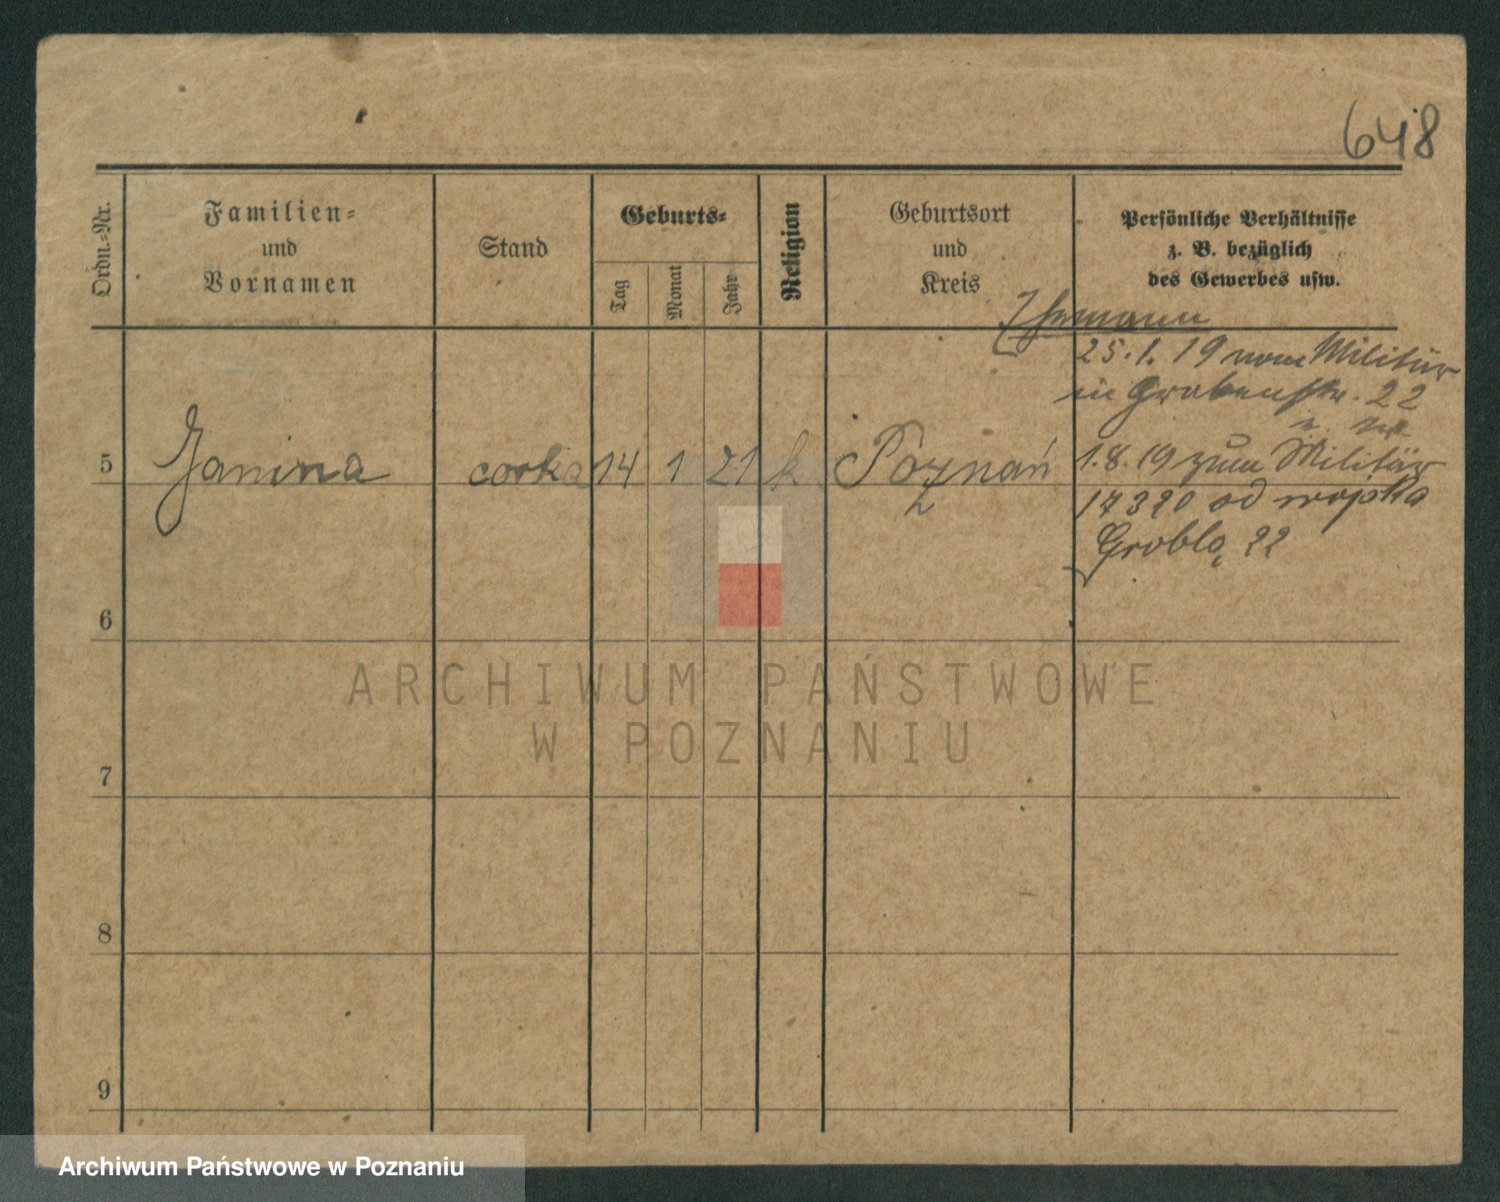 648
Ordn.-Nr.
Familien-
und
Vornamen
Stand
Geburts-
Tag
Monat
Jahr
Religion
Geburtsort
und
Kreis
Persönliche Verhältnisse
z. B. bezüglich
des Gewerbes usw.
Ehemann
25.1.19 vom Militär
in Grabenstr. 22
5 Janina corka 14 1 21 k Poznań
1.8.19 zum Militär
17 3 20 od wojska
Grobla 22
6
7
8
9
ARCHIWUM PAŃSTWOWE
W POZNANIU
Archiwum Państwowe w Poznaniu